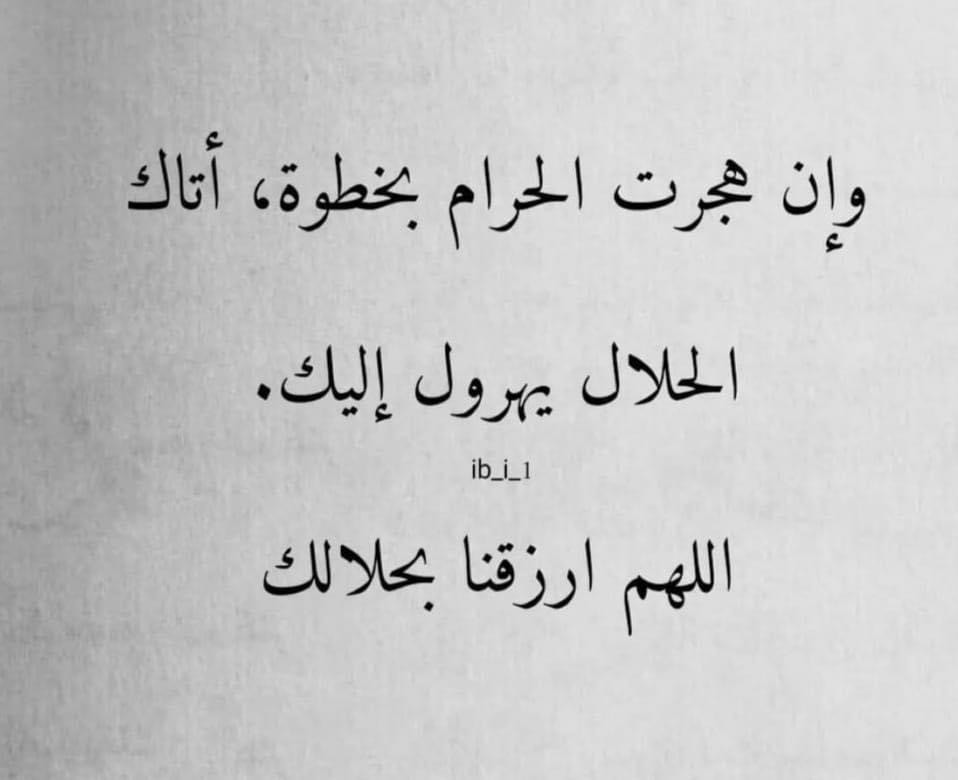 وإن هجرت الحرام بخطوة، أتاك
الحلال يهرول إليك.
ib_i_1
اللهم ارزقنا بحلالك